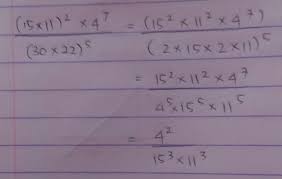 (15×11)² × 4⁷ / (30×22)⁵ = (15² × 11² × 4⁷) / (2×15×2×11)⁵
= 15² × 11² × 4⁷ / 4⁵ × 15⁵ × 11⁵
= 4² / 15³ × 11³